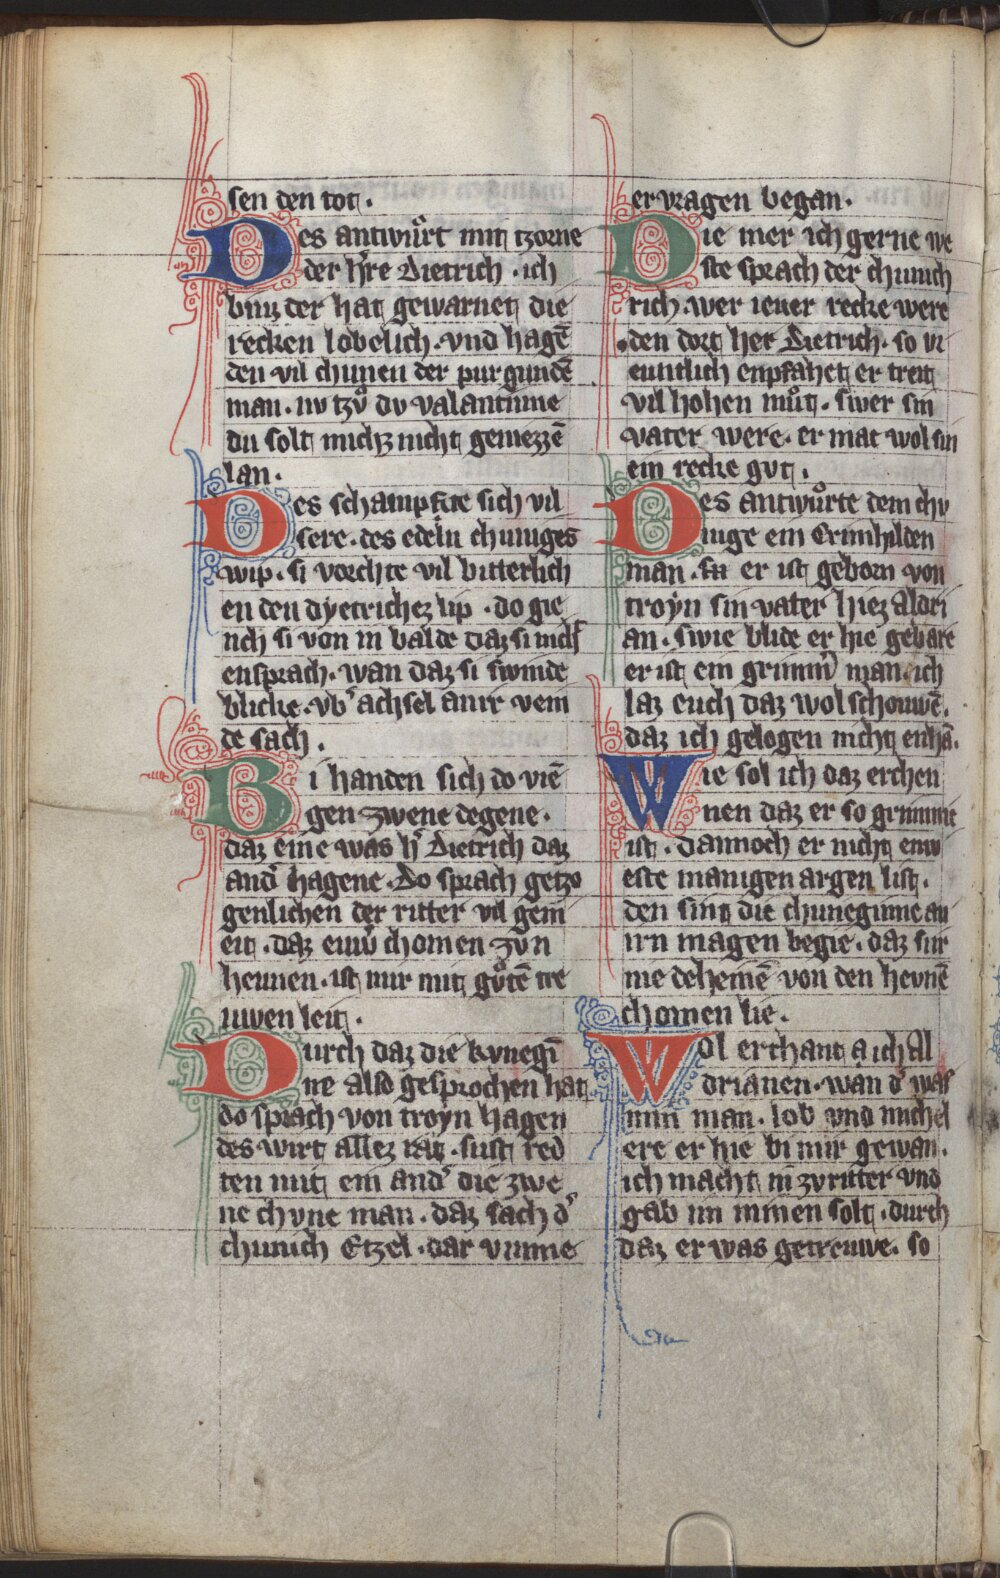 sen den tot.
Des antwuͦrt mit tzorne
der h're Dietrich . ich
binz der hat gewarnet die
recken lobelich . vnd hagē
den vil chunen der purgundē
man . nv tzvͦ dv valantinne
du solt michz nicht gemezzē
lan .
Des schampfte sich vil
sere . des edeln chuniges
wip . si vorchte vil bitterlich
en den dyetrichez lip . do gie
nch si von in balde daz si nichſ
ensprach . wan daz si swinde
blicke . vb' achsel anir vein
de sach .
Bi handen sich do viē
gen zwene degene .
daz eine was h' Dietrich daz
and' hagene . Do sprach getzo
genlichen der ritter vil gem
eit . daz euw' chomen zvn
heunen . ist mir mit guͦtē tre
uwen leit .
Durch daz die kvnegī
ne also gesprochen hat
do sprach von troyn hagen
des wirt allez rat . sust red
ten mit ein and' die zwe
ne chvne man . daz sach d'
chunich Etzel . dar vmme
er vragen began .
Die mer ich gerne we
ste sprach der chunich
rich . wer iener recke were
den dort her Dietrich . so vr
euntlich enpfahet er treit
vil hohen muͦt . swer sin
vater were . er mac wol sin
ein recke gvt .
Des antwuͦrte dem chv
nige ein Crimhilden
man . er ist geborn von
troyn sin vater hiez Aldri
an . swie blide er hie gebare
er ist ein grimm' man . ich
laz euch daz wol schouwē .
daz ich gelogen nicht enhā .
Wie sol ich daz erchen
nen daz er so grimme
ist . dannoch er nicht enw
este manigen argen list .
den sint die chuneginne an
irn magen begie . daz sir
nie deheinē von den hevnē
chomen lie .
Wol erchant a ich Al
drianen . wan d' waſ
min man . lob vnd michel
ere er hie bi mir gewan .
ich macht in zvritter vnd
gab im minen solt . durch
daz er was getreuwe . so